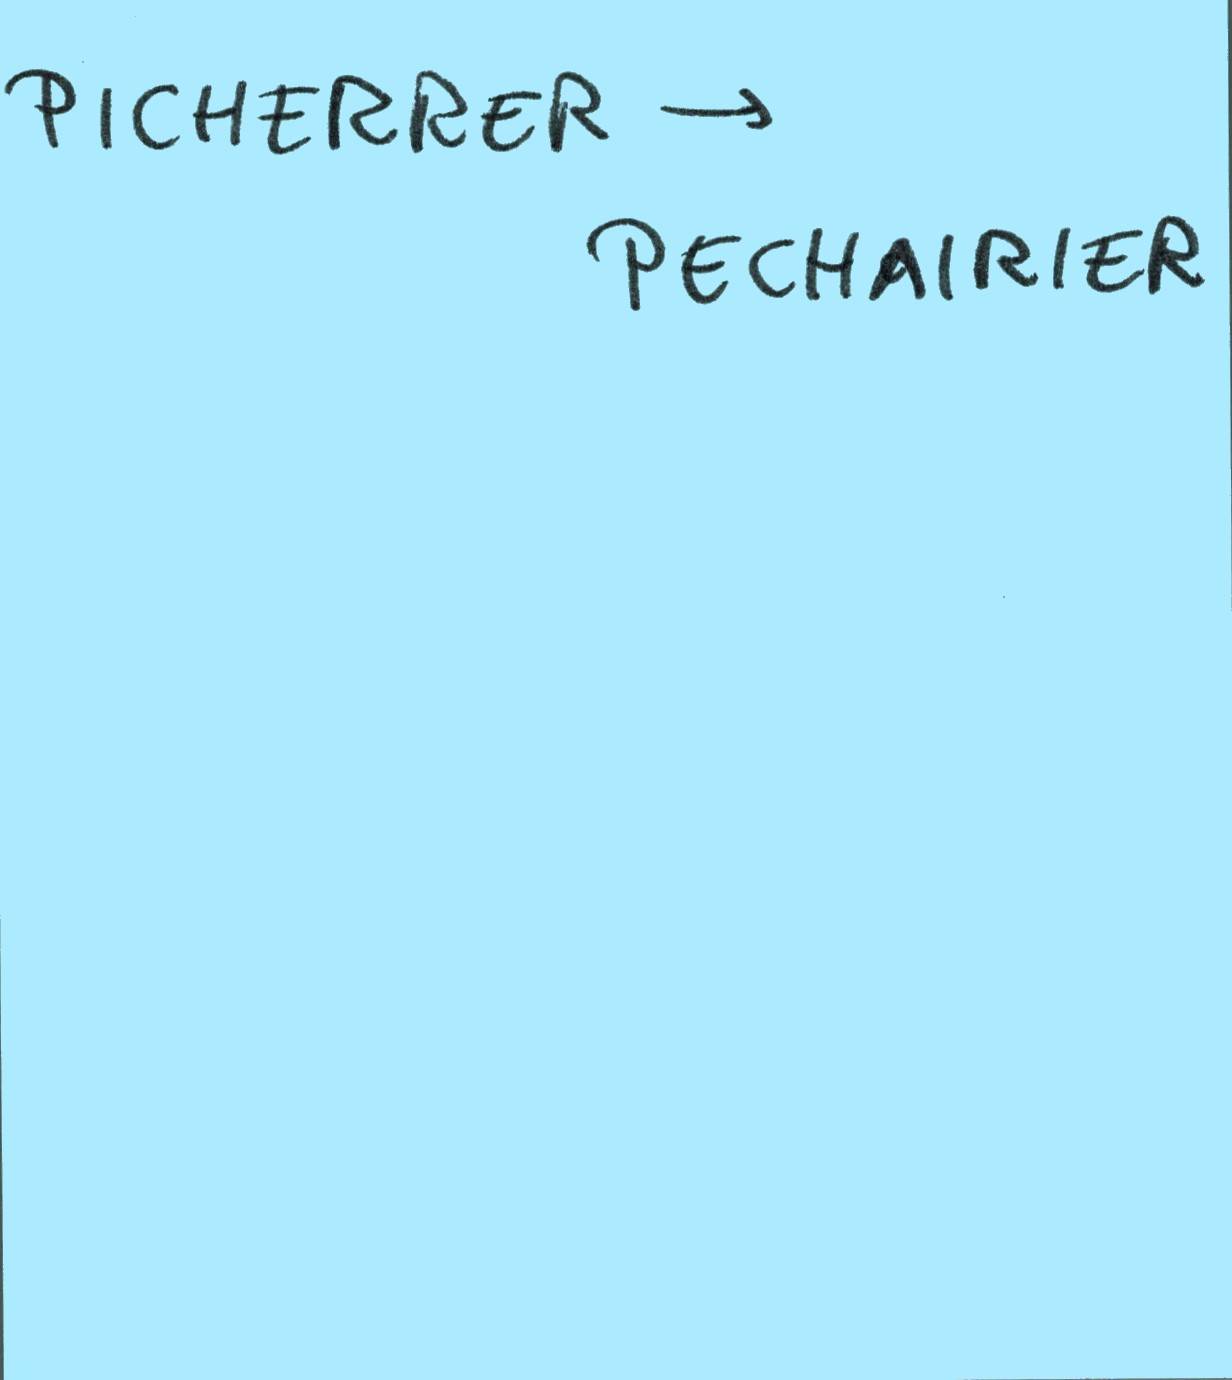 PICHERRER →
PECHAIRIER